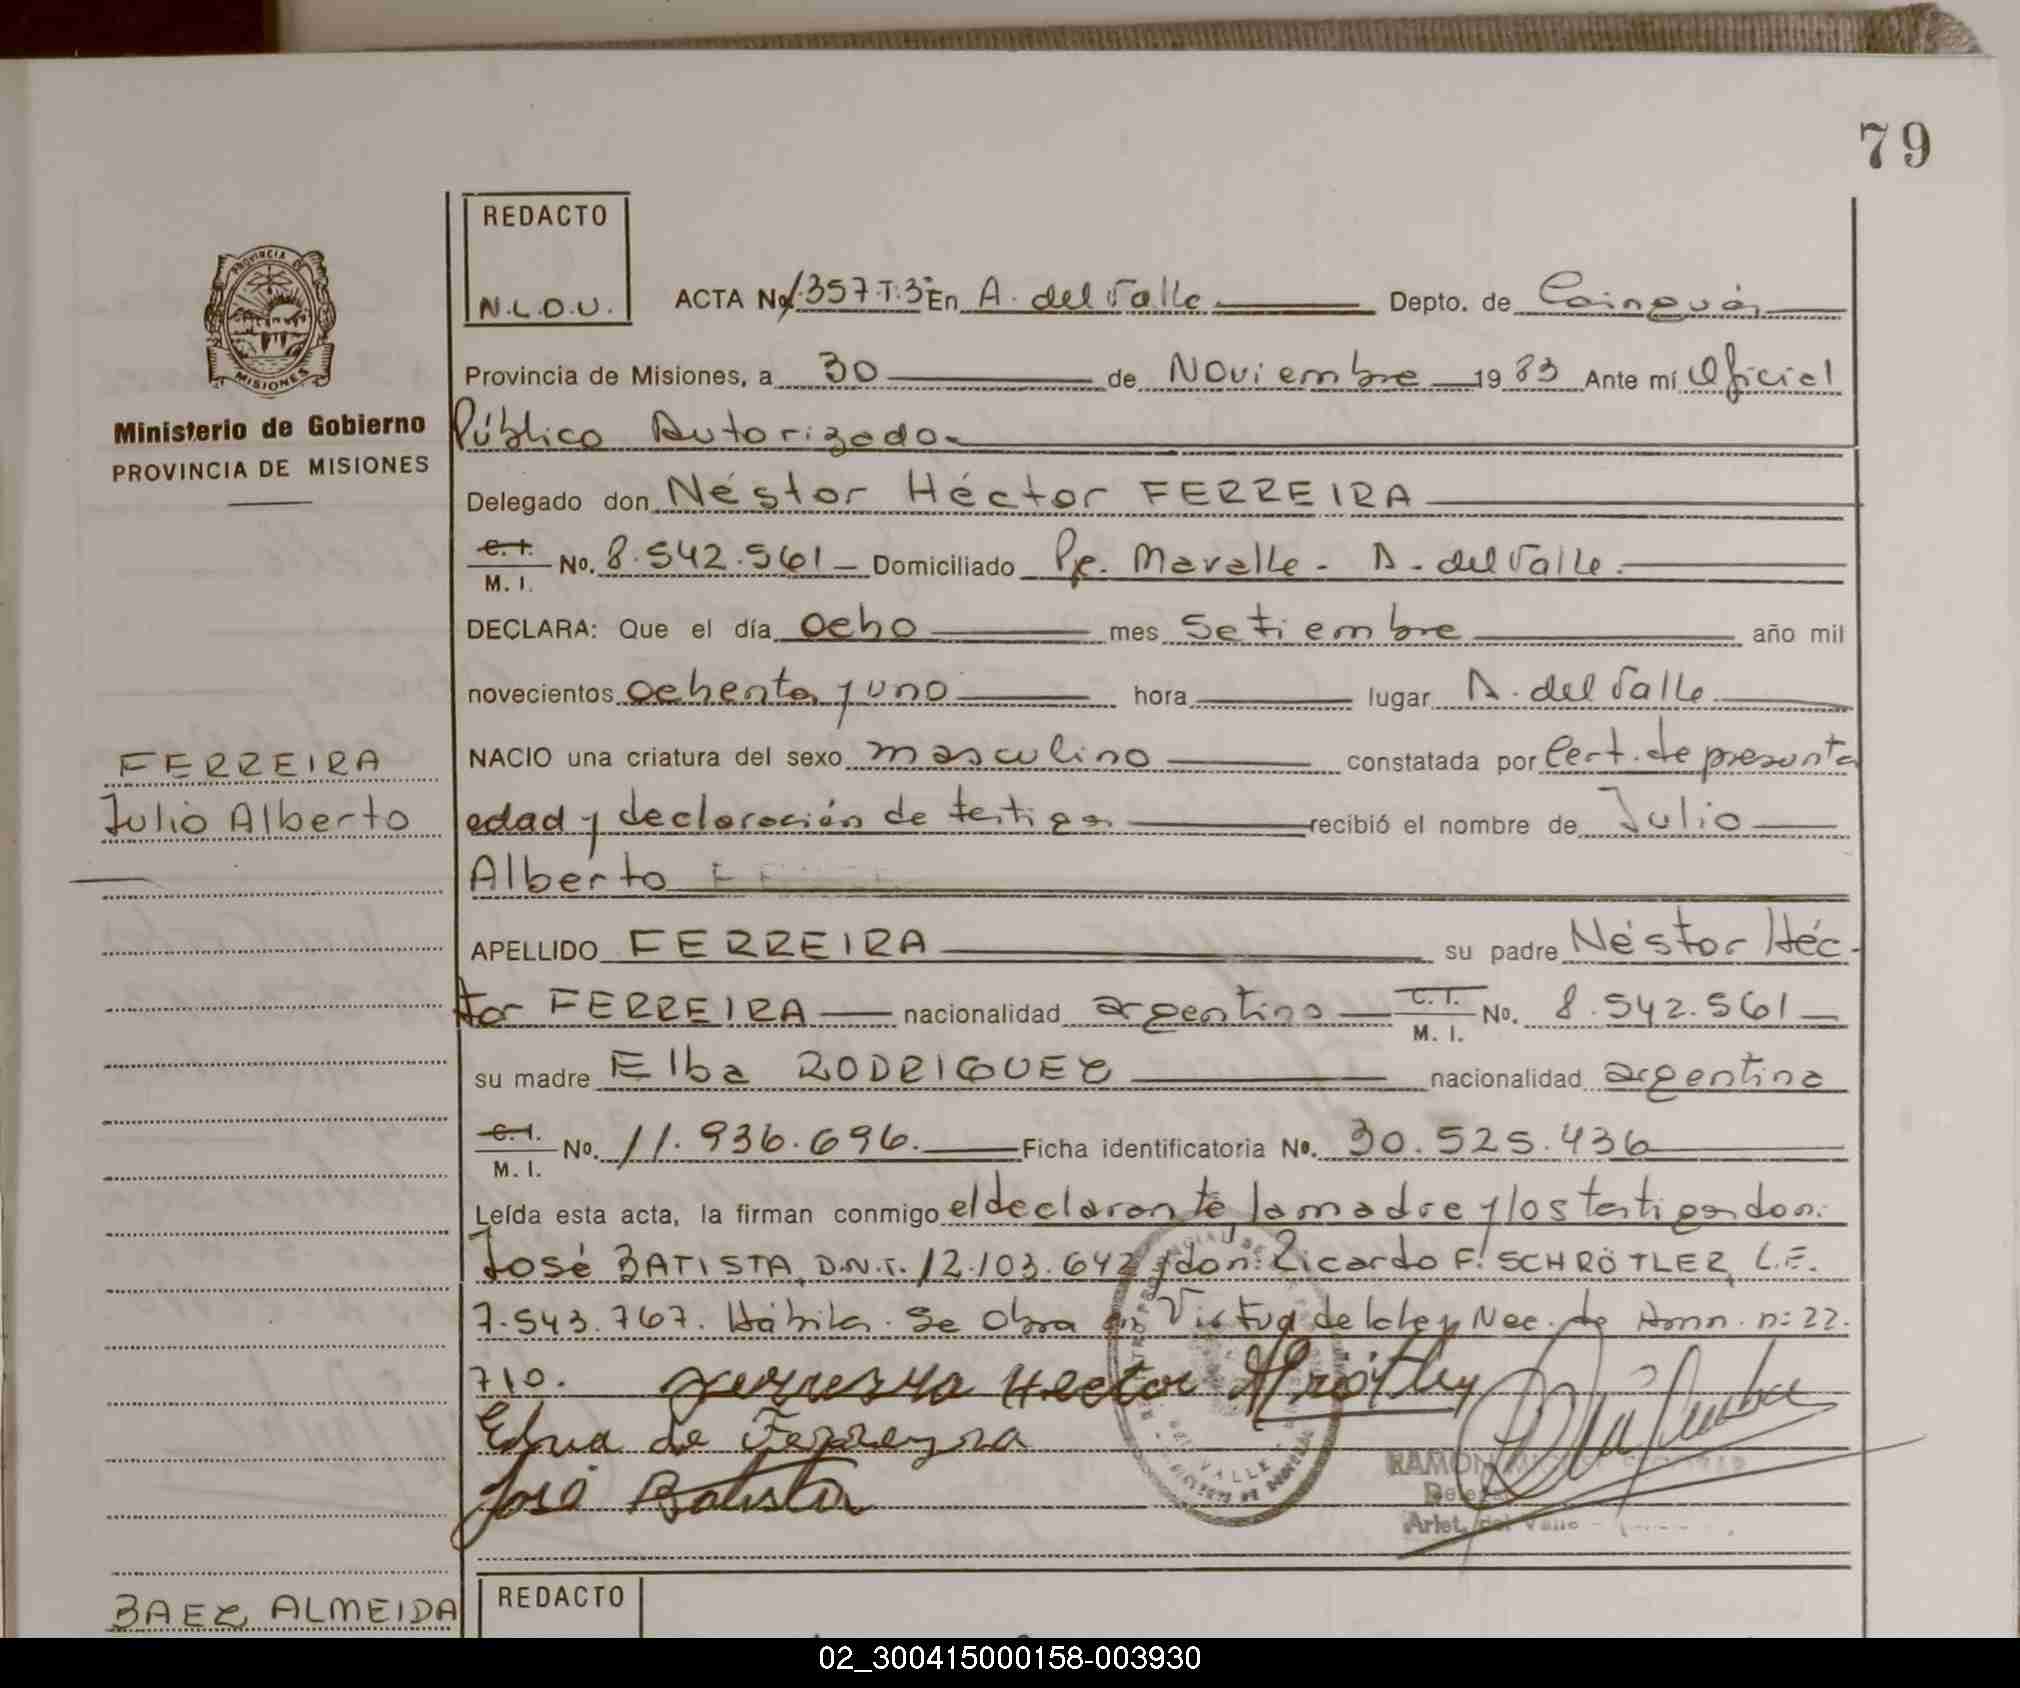 79
REDACTO
N.L.O.U.
PROVINCIA DE
MISIONES
Ministerio de Gobierno
PROVINCIA DE MISIONES
ACTA No. 1.357.T.3º En A. del Valle Depto. de Cainguás
Provincia de Misiones, a 30 de Noviembre 1983 Ante mí Oficial
Público Autorizado
Delegado don Néstor Héctor FERREIRA
C. I. M. I. No. 8.542.561 Domiciliado Pje. Mavalle - A. del Valle.
DECLARA: Que el día ocho mes Setiembre año mil
novecientos ochenta y uno hora lugar A. del Valle
FERREIRA
Julio Alberto
NACIO una criatura del sexo masculino constatada por Cert. de presunta
edad y declaración de testigos recibió el nombre de Julio
Alberto
APELLIDO FERREIRA su padre Néstor Héc-
tor FERREIRA nacionalidad argentino C. I. M. I. No. 8.542.561
su madre Elba RODRIGUEZ nacionalidad argentina
C. I. M. I. No. 11.936.696. Ficha identificatoria No. 30.525.436
Leída esta acta, la firman conmigo el declarante, la madre y los testigos don:
José BATISTA, D.N.I. 12.103.642 y don: Ricardo F. SCHRÖTLER, L.E.
7.543.767. Hábiles. Se Obra en Virtud de la ley Nac. de Amn. n: 22.
710. Ferreyra Hector
Elva de Ferreyra
José Batista
VALLE
RAMON
Delega
Arist. del Valle
BAEZ ALMEIDA
REDACTO
02_300415000158-003930